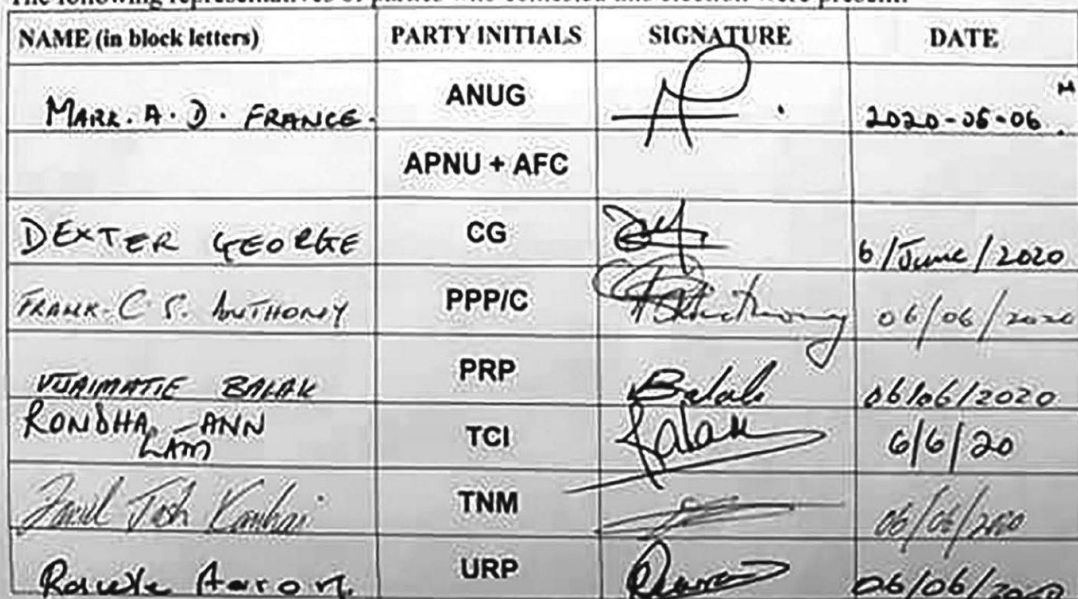 The following representatives of parties who contested this election were present:
NAME (in block letters) PARTY INITIALS SIGNATURE DATE
MARK. A. D. FRANCE. ANUG 2020-06-06
APNU + AFC
DEXTER GEORGE CG 6/June/2020
FRANK C S. ANTHONY PPP/C 06/06/2020
VIJAIMATIE BALAK PRP Balak 06/06/2020
RONDHA ANN
LAM TCI 6/6/20
Josh Kanhai TNM
Aaron. URP 06/06/2020